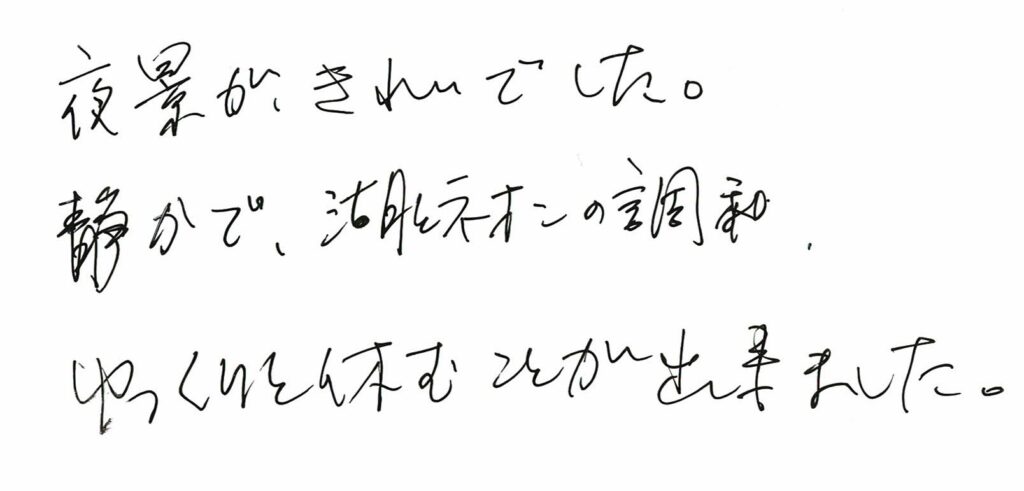 夜景がきれいでした。
静かで、湖とネオンの調和、
ゆっくりと休むことが出来ました。